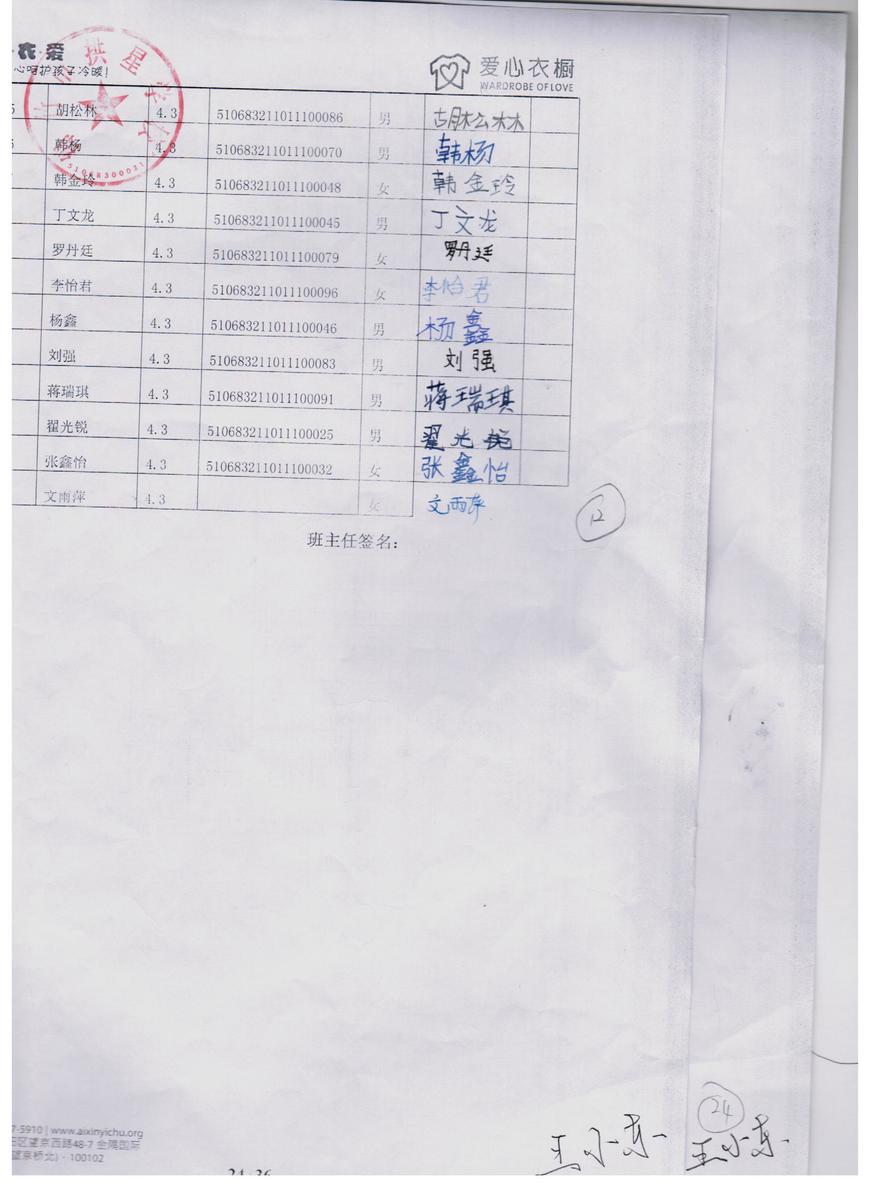 衣·爱
心呵护孩子冷暖!
爱心衣橱
WARDROBE OF LOVE
拱星学校
5106830002
5 胡松林 4.3 510683211011100086 男 胡松林
韩杨 4.3 510683211011100070 男 韩杨
韩金玲 4.3 510683211011100048 女 韩金玲
丁文龙 4.3 510683211011100045 男 丁文龙
罗丹廷 4.3 510683211011100079 女 罗丹廷
李怡君 4.3 510683211011100096 女 李怡君
杨鑫 4.3 510683211011100046 男 杨鑫
刘强 4.3 510683211011100083 男 刘强
蒋瑞琪 4.3 510683211011100091 男 蒋瑞琪
翟光锐 4.3 510683211011100025 男 翟光锐
张鑫怡 4.3 510683211011100032 女 张鑫怡
文雨萍 4.3 女 文雨萍
12
班主任签名:
24
7-5910 | www.aixinyichu.org
区望京西路48-7 金隅国际
望京桥北) · 100102
王小东 王小东